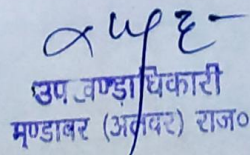 उप खण्डाधिकारी
मुण्डावर (अलवर) राज०